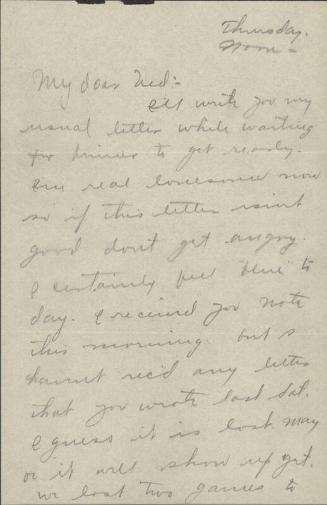 Thursday.
Noon -
My dear Ned:-
I'll write you my
usual letter while waiting
for dinner to get ready.
I'm real lonesome now
so if this letter isn't
good don't get angry.
I certainly feel "blue" to
day. I received you note
this morning but I
haven't rec'd any letter
that you wrote last Sat.
I guess it is lost. May
or it will show up yet.
We lost two games to